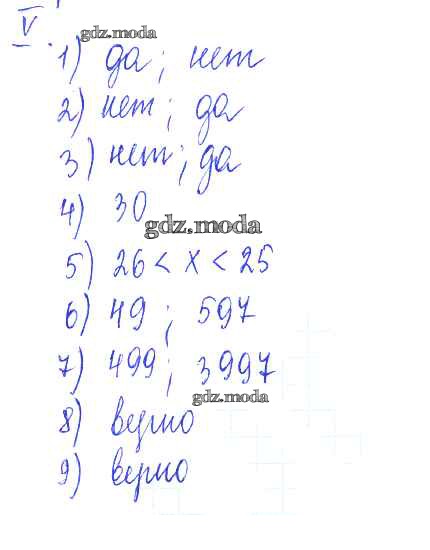 V.
gdz.moda
1) да; нет
2) нет; да
3) нет; да
4) 30
gdz.moda
5) 26 < x < 25
6) 49; 597
7) 499; 3997
gdz.moda
8) верно
9) верно